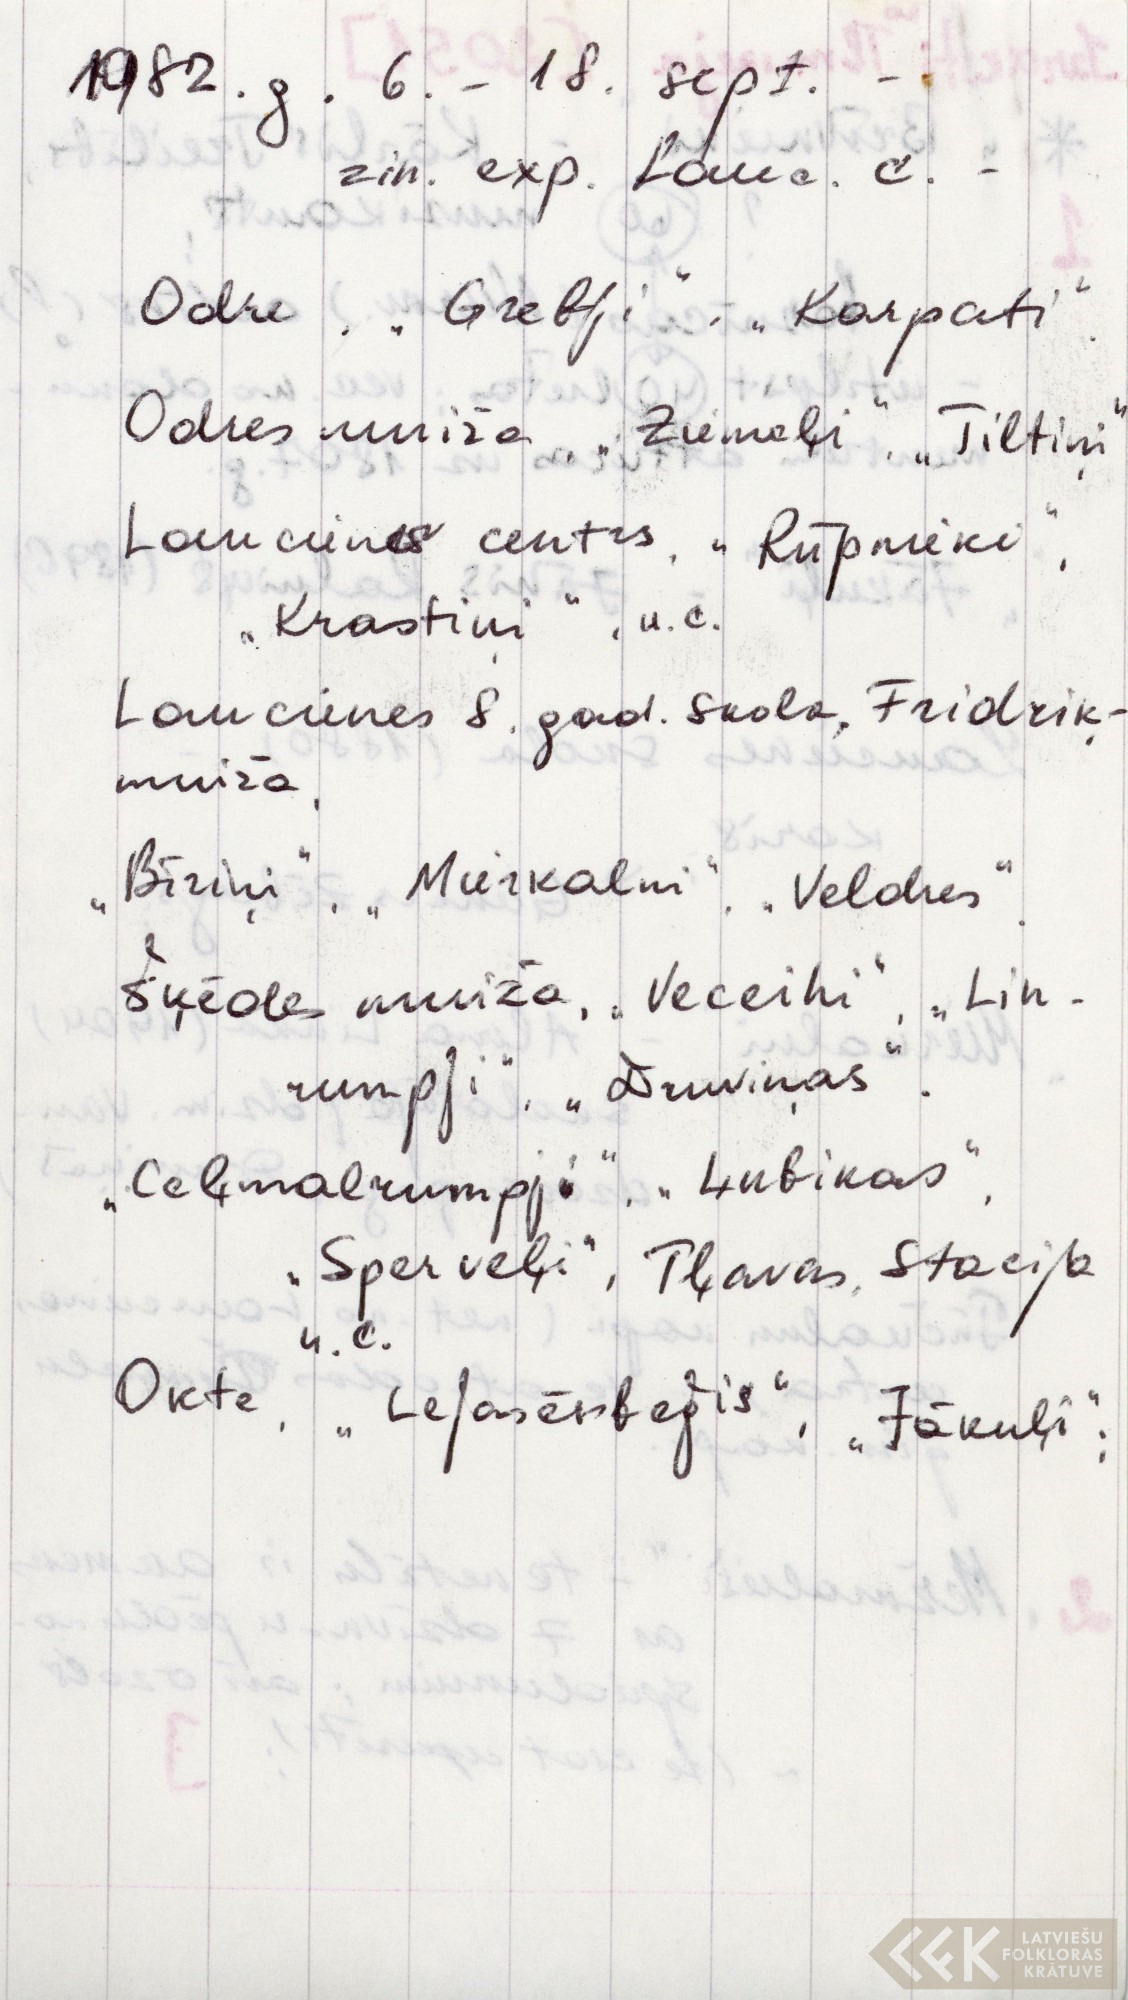 1982. g. 6. - 18. sept. -
zin. exp. Lauc. c. -
Odre, „Grebļi", „Karpati".
Odres muiža, „Ziemeļi", „Tiltiņi"
Laucienes centrs, „Rūpnieki",
„Krastiņi", u.c.
Laucienes 8. gad. skola, Fridriķ-
muiža,
„Bīriņi", „Mierkalni", „Veldres".
Šķēdes muiža, „Veceihi", „Lin-
rumpji", „Druviņas".
„Ceļmalrumpji", „Lubikas",
„Sperveļi", Pļavas, Stacija
u.c.
Okte, „Lejasērsbeģis", „Jākuļi";
LATVIEŠU
FOLKLORAS
KRĀTUVE